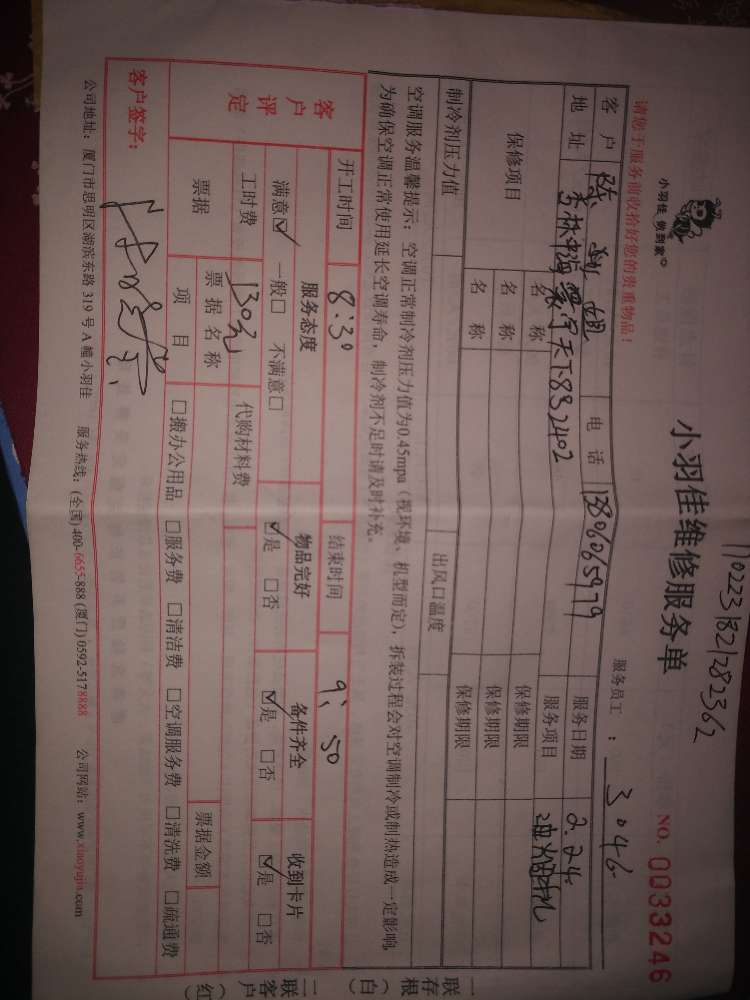 1102231821282362
小羽佳 做到家
小羽佳维修服务单
NO. 0033246
请您于服务前收拾好您的贵重物品！
服务员工：3046
客户 陈 姐 电话 13806065979 服务日期 2.24
地址 杏林中海寰宇天下832402 服务项目 油烟机
保修项目 名称 保修期限
名称 保修期限
名称 保修期限
制冷剂压力值 出风口温度
空调服务温馨提示：空调正常制冷剂压力值为0.45mpa（视环境、机型而定），拆装过程会对空调制冷或制热造成一定影响，
为确保空调正常使用延长空调寿命，制冷剂不足时请及时补充。
开工时间 8:30 结束时间 9:50
客户评定 服务态度 物品完好 备件齐全 收到卡片
满意☑ 一般□ 不满意□ ☑是 □否 ☑是 □否 ☑是 □否
工时费 130元 代购材料费
票据 票据名称 票据金额
项目 □搬办公用品 □服务费 □清洁费 □空调服务费 □清洗费 □疏通费
客户签字：
公司地址：厦门市思明区湖滨东路 319 号 A 幢小羽佳 服务热线：(全国)400-6655-888 (厦门) 0592-5178888 公司网站：www.xiaoyujia.com
一联存根（白）
二联客户（红